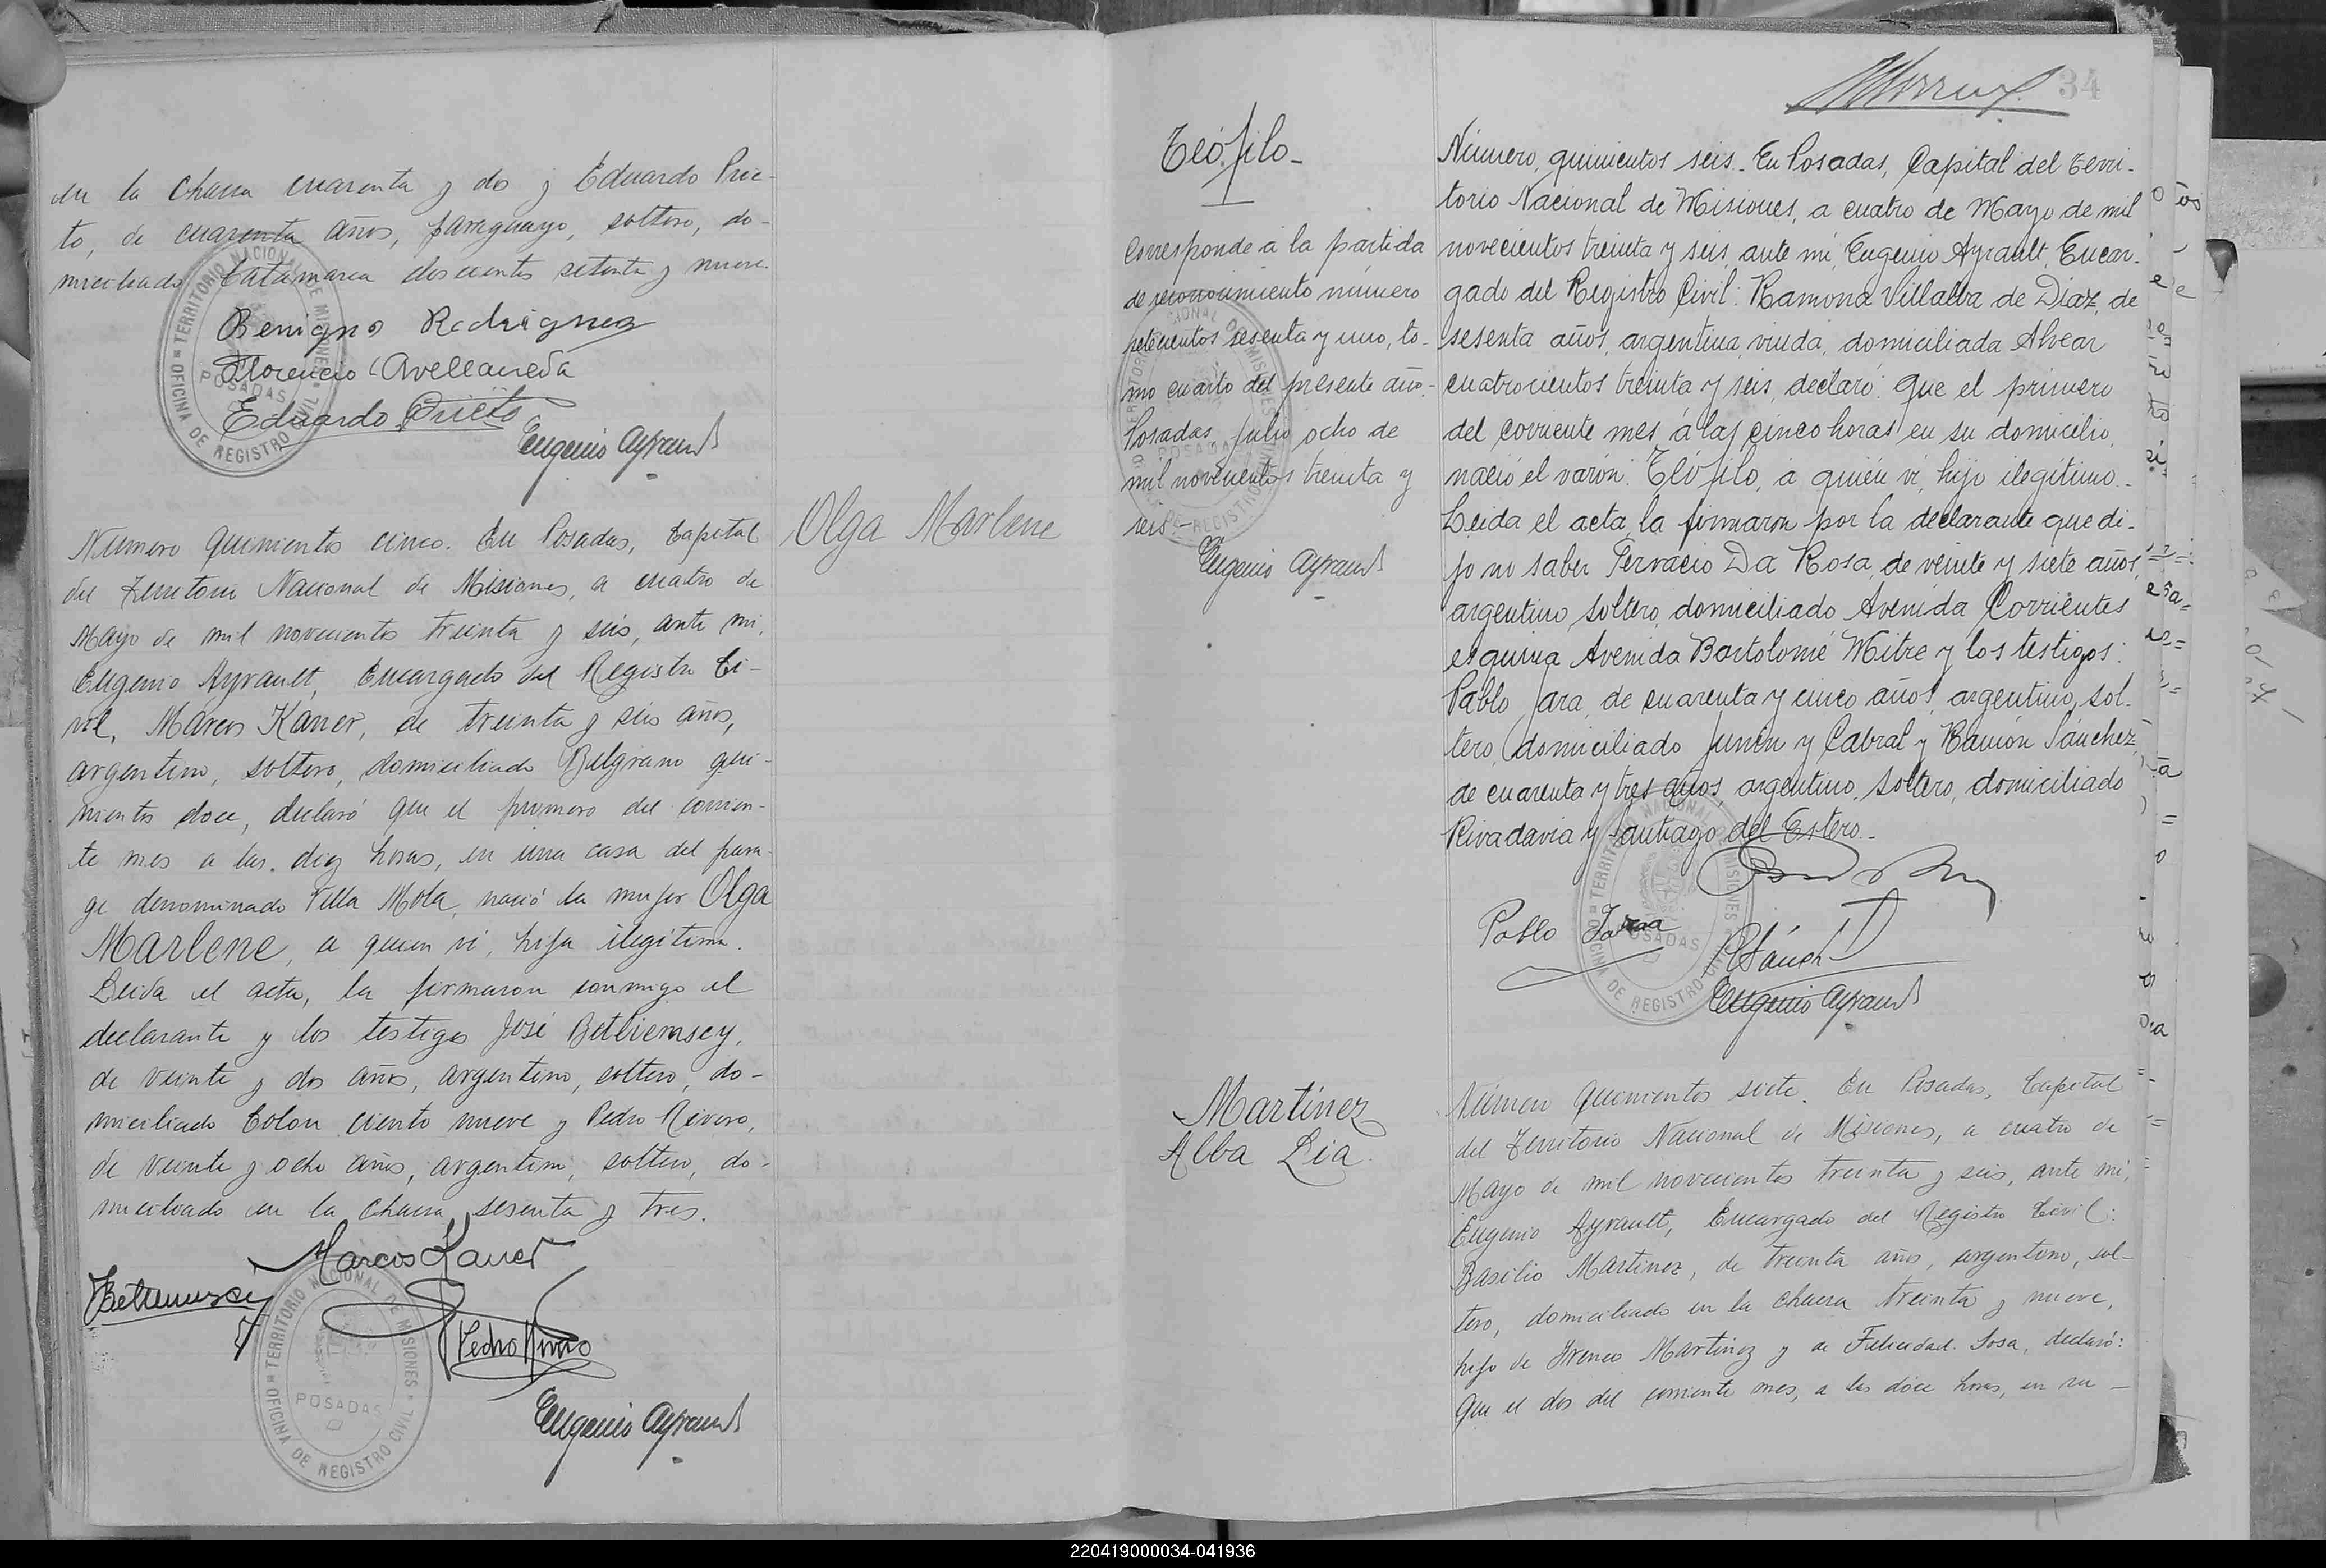 en la chacra cuarenta y dos y Eduardo Prie-
to, de cuarenta años, paraguayo, soltero, do-
miciliado Catamarca doscientos setenta y nueve.
Benigno Rodriguez
Florencio Avellaneda
Eduardo Prieto
Eugenio Ayrault
TERRITORIO NACIONAL DE MISIONES
POSADAS
OFICINA DE REGISTRO CIVIL
Número quinientos cinco. En Posadas, Capital
del Territorio Nacional de Misiones, a cuatro de
Mayo de mil novecientos treinta y seis, ante mi,
Eugenio Ayrault, Encargado del Registro Ci-
vil, Marcos Kaner, de treinta y seis años,
argentino, soltero, domiciliado Belgrano qui-
nientos doce, declaró que el primero del corrien-
te mes a las diez horas, en una casa del para-
ge denominado Villa Mola, nació la mujer Olga
Marlene, a quien vi, hija ilegítima.
Leida el acta, la firmaron conmigo el
declarante y los testigos José Betliemsey,
de veinte y dos años, argentino, soltero, do-
miciliado Colon ciento nueve y Pedro Rivero,
de veinte y ocho años, argentino, soltero, do-
miciliado en la chacra sesenta y tres.
Marcos Kaner
Pedro Rivero
Eugenio Ayrault
TERRITORIO NACIONAL DE MISIONES
POSADAS
OFICINA DE REGISTRO CIVIL
Olga Marlene
34
Teófilo-
Corresponde a la partida
de reconocimiento número
setecientos sesenta y uno, to-
mo cuarto del presente año.-
Posadas, Julio ocho de
mil novecientos treinta y
seis.-
Eugenio Ayrault
Número, quinientos seis.- En Posadas, Capital del Terri-
torio Nacional de Misiones, a cuatro de Mayo de mil
novecientos treinta y seis, ante mi, Eugenio Ayrault, Encar-
gado del Registro Civil: Ramona Villalba de Diaz, de
sesenta años, argentina, viuda, domiciliada Alvear
cuatrocientos treinta y seis, declaró: que el primero
del corriente mes, á las cinco horas en su domicilio,
nació el varón: Teófilo, a quién vi, hijo ilegítimo.-
Leida el acta, la firmaron por la declarante que di-
jo no saber Pervacio Da Rosa, de veinte y siete años,
argentino, soltero, domiciliado Avenida Corrientes
esquina Avenida Bartolomé Mitre y los testigos:
Pablo Jara, de cuarenta y cinco años, argentino, sol-
tero, domiciliado Junín y Cabral y Ramón Sánchez,
de cuarenta y tres años, argentino, soltero, domiciliado
Rivadavia y Santiago del Estero.-
Pablo Jara
RSánch
Eugenio Ayrault
TERRITORIO NACIONAL DE MISIONES
POSADAS
OFICINA DE REGISTRO CIVIL
Martínez
Alba Lia.
Número quinientos siete. En Posadas, Capital
del Territorio Nacional de Misiones, a cuatro de
Mayo de mil novecientos treinta y seis, ante mi,
Eugenio Ayrault, Encargado del Registro Civil:
Basilio Martinez, de treinta años, argentino, sol-
tero, domiciliado en la chacra treinta y nueve,
hijo de Ireneo Martinez y de Felicidad Sosa, declaró:
Que el dos del corriente mes, a las doce horas, en su -
220419000034-041936